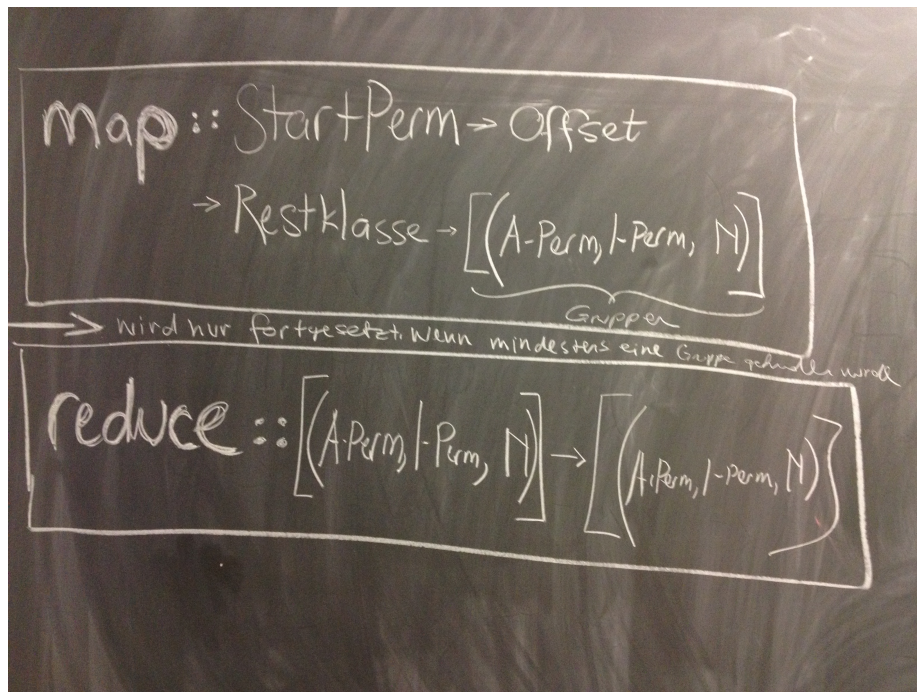 map :: StartPerm → Offset
→ Restklasse → [(A-Perm, I-Perm, N)]
Gruppen
→ wird nur fortgesetzt, wenn mindestens eine Gruppe gefunden wurde
reduce :: [(A-Perm, I-Perm, N)] → [(A-Perm, I-Perm, N)]